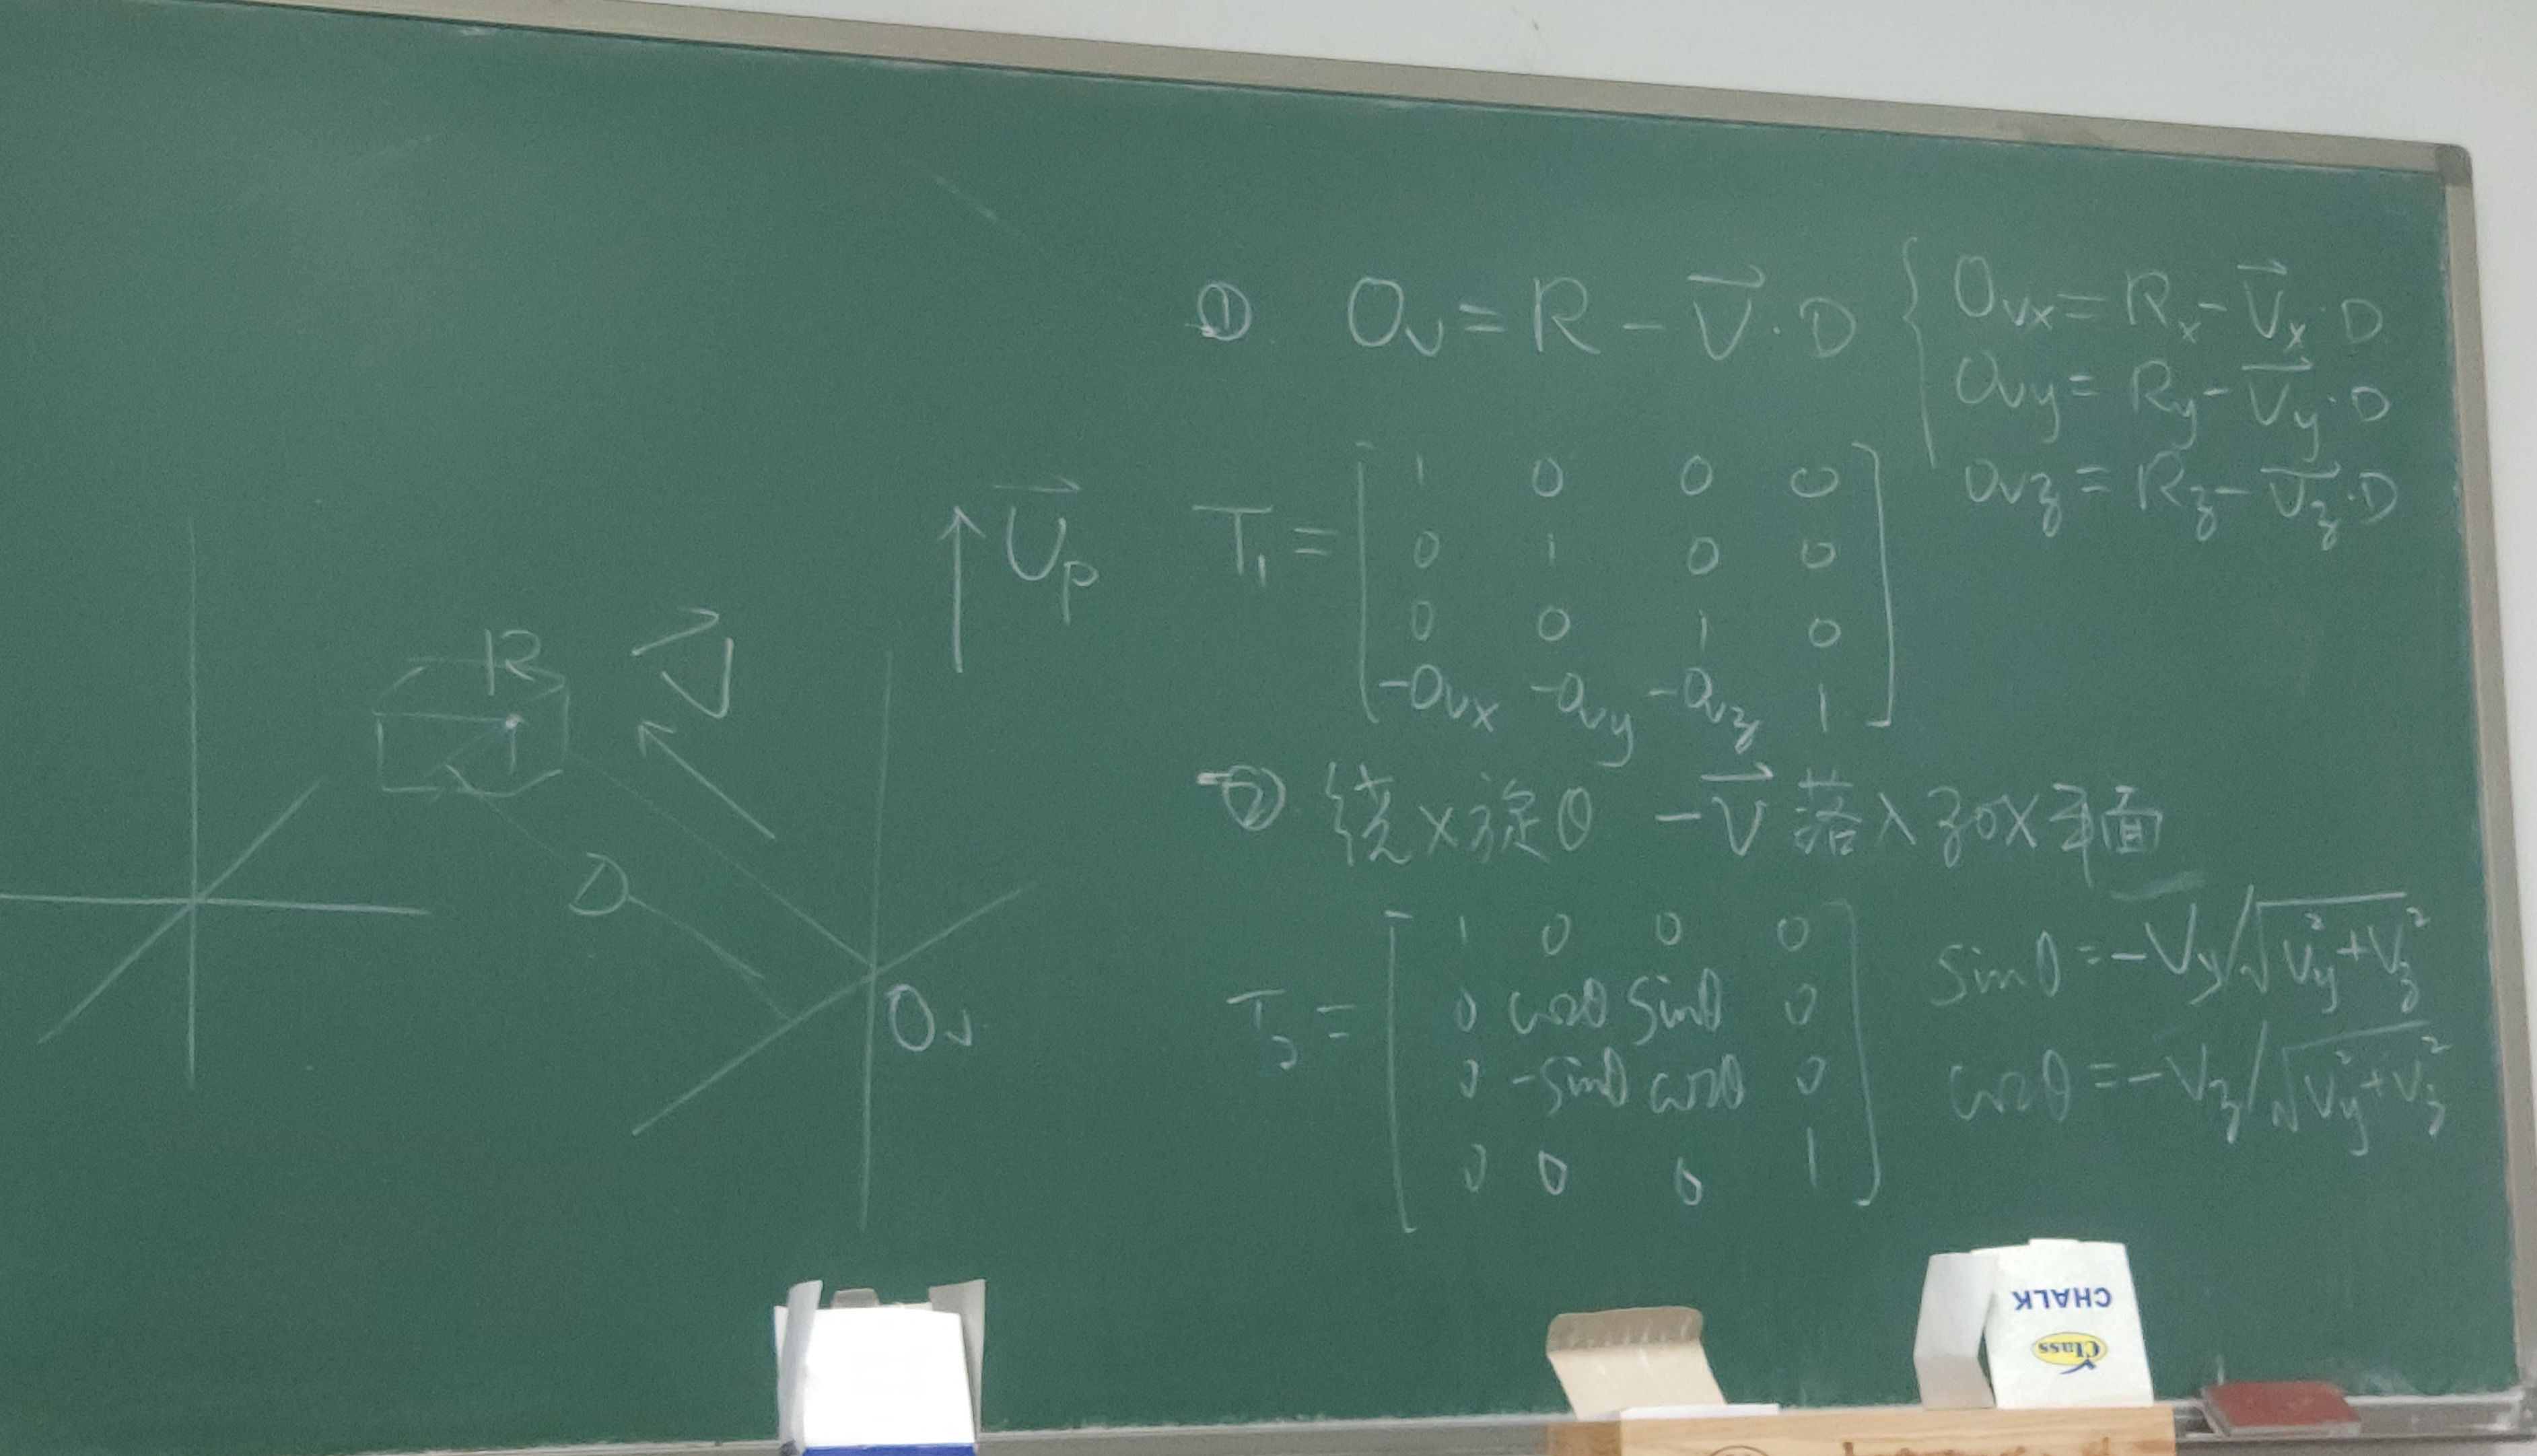 ① Ov = R - V⃗ · D
{ Ovx = Rx - V⃗x · D
Ovy = Ry - V⃗y · D
Ovz = Rz - V⃗z · D
T1 = [ 1 0 0 0
0 1 0 0
0 0 1 0
-Ovx -Ovy -Ovz 1 ]
② 绕X旋θ -V⃗ 落入zOX平面
T2 = [ 1 0 0 0
0 cosθ sinθ 0
0 -sinθ cosθ 0
0 0 0 1 ]
sinθ = -Vy/√(Vy²+Vz²)
cosθ = -Vz/√(Vy²+Vz²)
U⃗p
R
V⃗
D
Ov
CHALK
Class